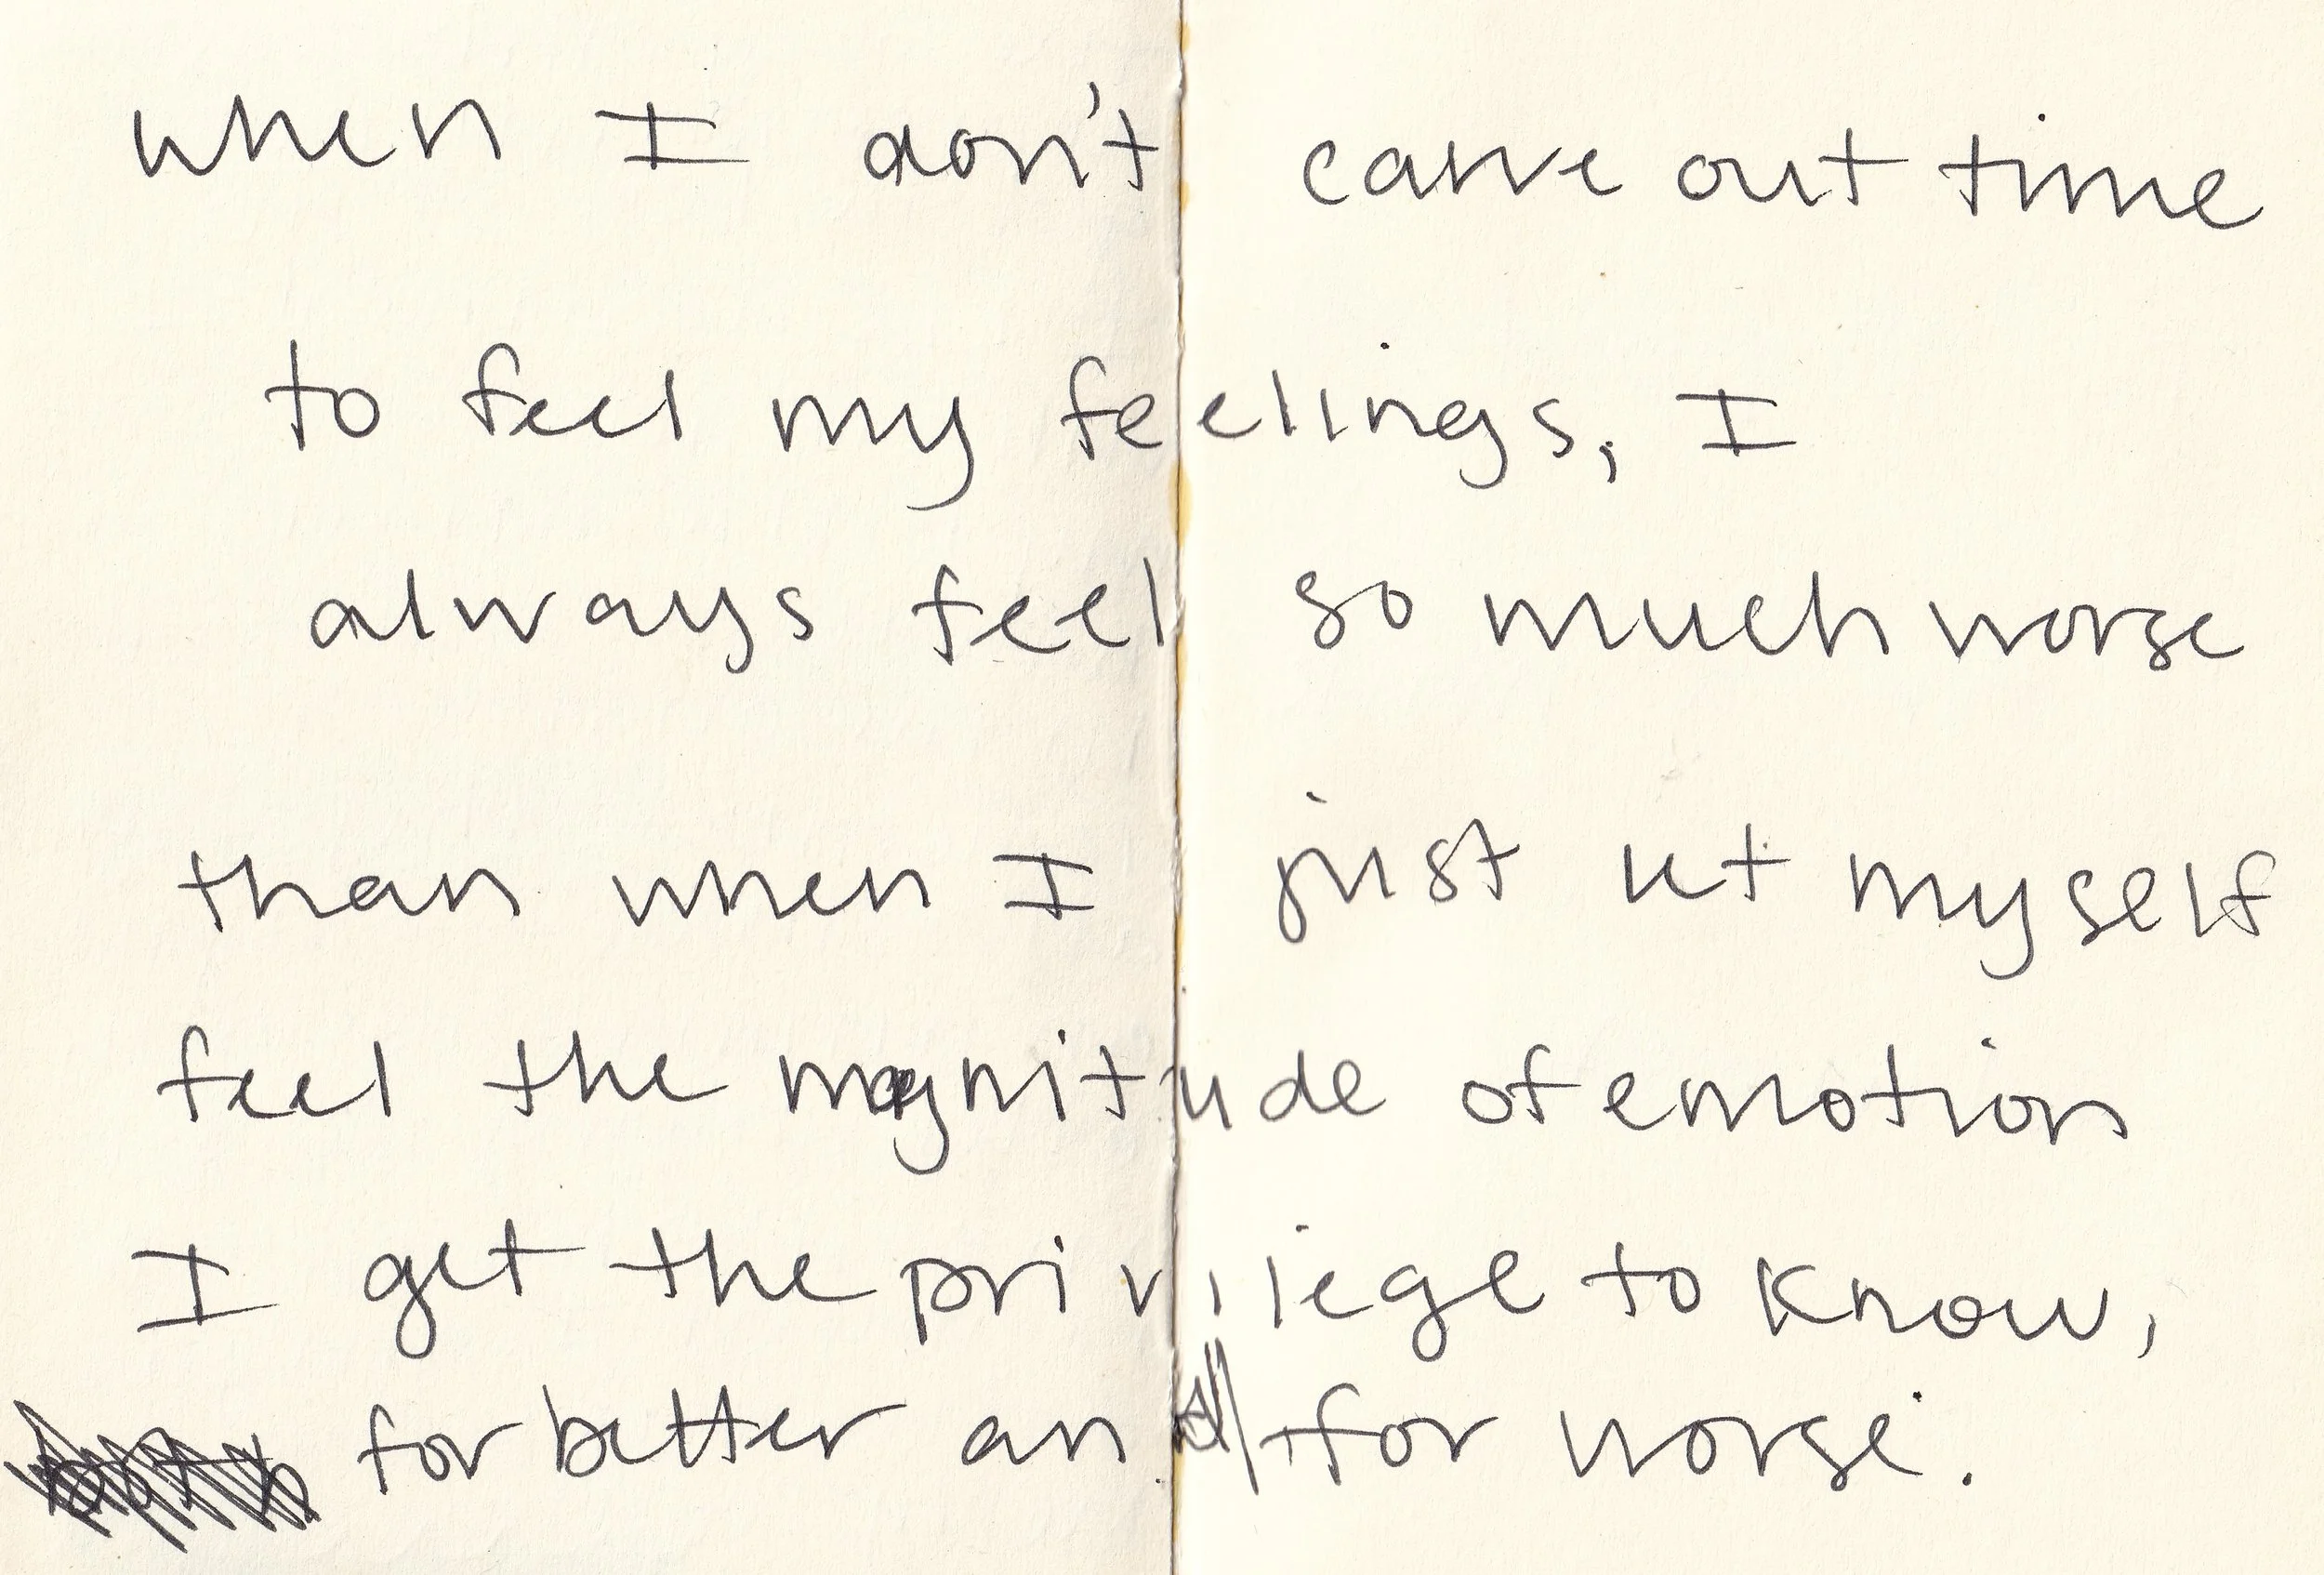 when I don't carve out time
to feel my feelings, I
always feel so much worse
than when I just let myself
feel the magnitude of emotion
I get the privilege to know,
for better and for worse.